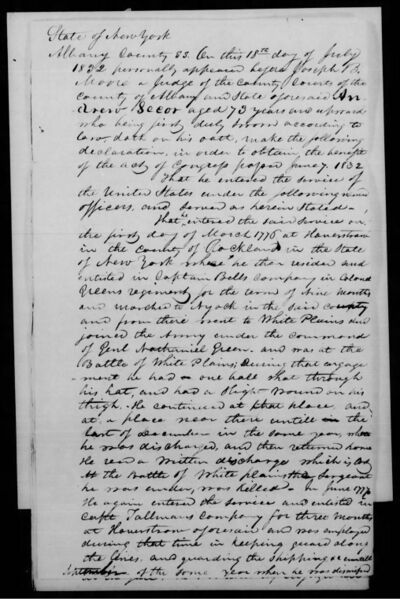 State of New York
Albany County SS. On this 18th day of July
1832 personally appeared before Joseph B.
Moore a Judge of the County Courts of the
County of Albany and State aforesaid An
drew Becor aged 73 years and upward
who being first duly sworn according to
law, doth on his oath, make the following
declaration, in order to obtain the benefit
of the act of Congress passed June 7. 1832
That he entered the service of
the United States under the following named
officers, and served as herein stated.
That he entered the said service on
the first day of March 1776 at Haverstraw
in the county of Rockland in the State
of New York where he then resided and
enlisted in Captain Bells Company in Colonel
regiment for the term of nine months
and marched to Nyack in the said county
and from there went to White Plains and
joined the Army under the command
of Genl Nathaniel Green. and was at the
Battle of White Plains; During that engage
ment he had one ball shot through
his hat, and had a slight wound on his
thigh. He continued at that place, and
at a place near there untill in the
last of December in the same year, when
he was discharged, and then returned home
He had a written discharge which is lost
At the Battle of White plains the Sergeant
he was under, was killed. In June 1777
He again entered the service and enlisted in
Capt Tallmans Company for three months
at Haverstraw aforesaid and was employed
during that time in keeping guard along
the lines, and guarding the shipping
of the same year when he was dismissed